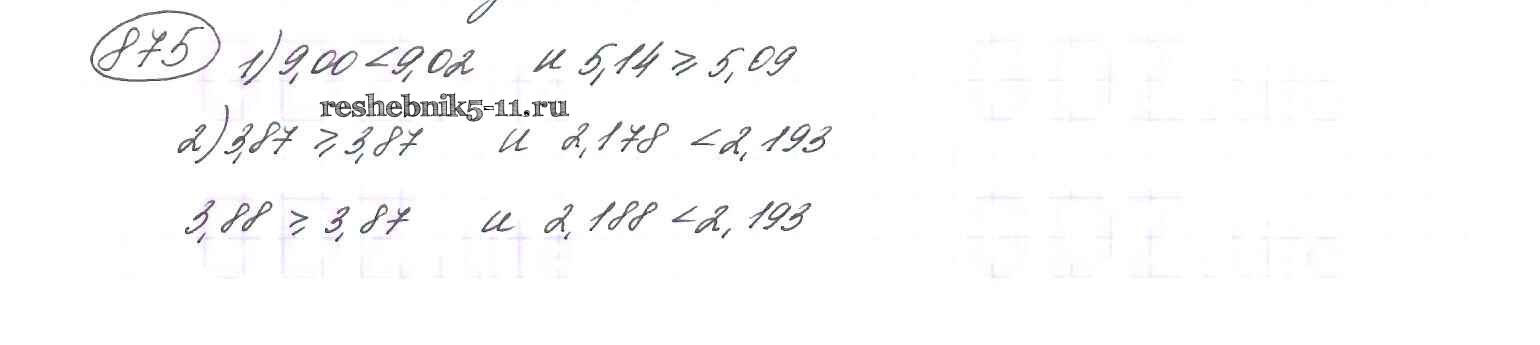 875 1) 9,00 < 9,02 и 5,14 ⩾ 5,09
reshebnik5-11.ru
2) 3,87 ⩾ 3,87 и 2,178 < 2,193
3,88 ⩾ 3,87 и 2,188 < 2,193